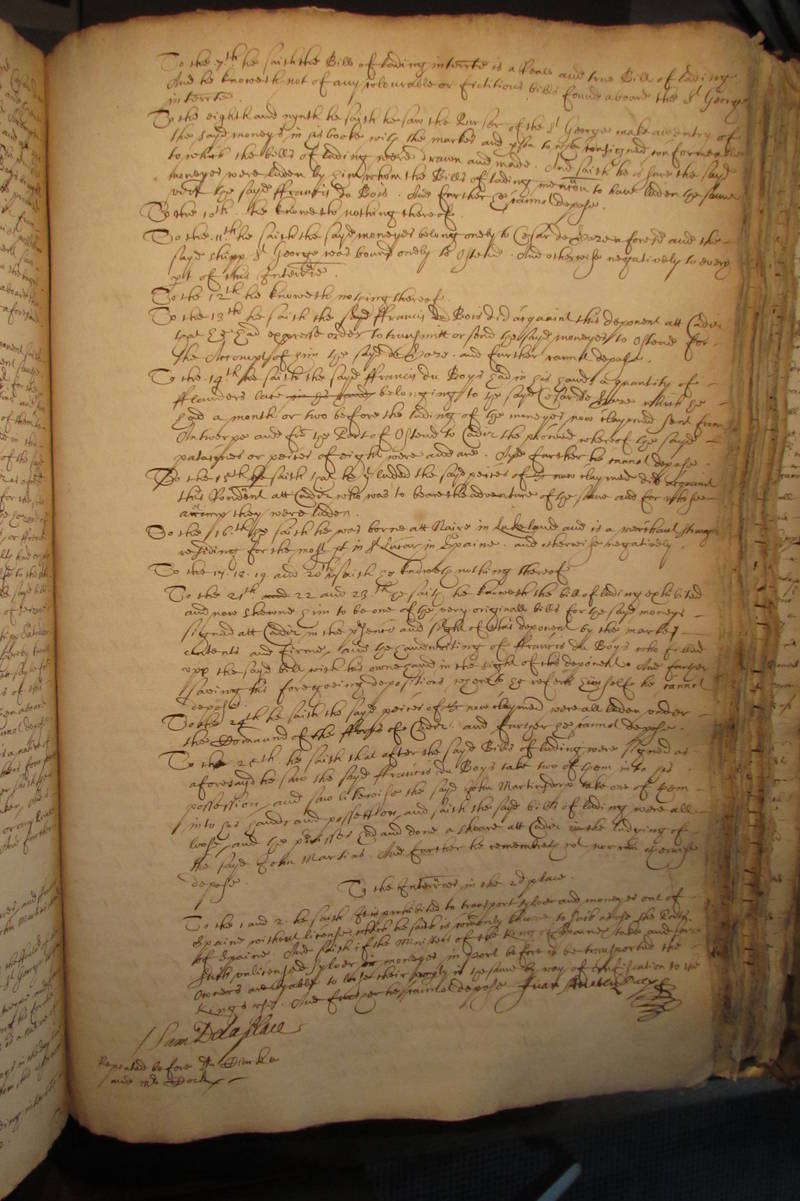 To the 7th he saith the Bill of lading interrte is a Reall and true Bill of lading
And he knoweth not of any colourable or fictitious bills found aboard the St George
interrte
To the eighth and nynth he saith he saw the Purser of the St George make an entry of
the sayd moneys in his booke with the markes and consigned conformable
to which the bills of lading were drawn and made. And saith he is sure the sayd
moneyes were laden by him whom the Bills of lading mention to have laden the same
vizt the sayd ffrancis du Bois. And further he cannot depose.
To the 10th he knoweth nothing thereof.
To the 11th he saith the sayd moneyes belong onely to Cesar de Boze aforesd and the
sayd shipp St George was bound onely to Ostend. And otherwise negatively to every
pt of this Interrte.
To the 12th he knoweth nothing thereof
To the 13th he saith the sayd ffrancis du Bois did acquaint this deponent att Cadiz
that hee had expresse order to transmitt or send the sayd moneyes to Ostend for
the Accompt of him the sayd de Boze. and further cannot depose.
To the 14th he saith the sayd ffrancis du Boys had in his hands a quantity of
fflanders lace in his hands belonging to the sayd Cesar de Boze which he
had a month or two before the lading of the moneyes now claymed sent from
Antwerpe and the Port of Ostend to Cadiz the proceed whereof the sayd
patacones or peices of eight were and are. And further he cannot depose.
To the 15th saith that he who laded the sayd peices of 8/8 now claymed did acquaint
this Rondent att Cadiz who was to beare the adventure of the same and for whose
accompt they were laden.
To the 16th he saith he was borne att in Lukeland and is a merchant strangr
residing for the most pt in St Lucar in Spaine. and otherwise negatively.
To the 17. 18. 19 and 20th saith he knoweth nothing thereof
To the 21th and 22 and 23th he saith he knoweth the bill of lading exhibited
and now shewne him to be one of the very originall bills for the sayd moneys
signed att Cadiz in the presence and sight of this deponent by the market
contents and firme, and the handwriting of ffrancis du Boys who filled
upp the sayd bill with his owne hand in the sight of this deponent. And further
saveing his foregoeing depositions where to he referrs himselfe he cannot
depose.
To the 24th he saith the sayd peices of 8/8 now claymed were all laden under
the Command of the fforts of Cadiz. and further he cannot depose.
To the 25th he saith that after the sayd Bills of lading were signed as
aforesayd he saw the sayd ffrancis du Boys take two of them into his
possession, and saw likewise the sayd John Martinsdorp take one of them
into his hands and possession, and saith the sayd bills of lading were all
loose, and the premisses had and done a shoare att Cadiz in the lodging of
the sayd John Martins. And further he remembreth not nor can otherwise
depose.
To the Interries in the 2d place.
To the 1 and 2 he saith It is prohibited to transport sylver and moneyes out of
Spaine without license, which he saith is comonly knowne to such as use the Ports
of Spaine. And saith if the Ministers of the King of Spaine take and seize
such unlicensed sylver or moneyes in port before it be transported the
owners are lyable to loose their propty in the same by way of confiscation to the
Kings use. And further he cannot depose. Juan
Sam Delaplace
Repeated before Dr Clerke
and Mr Dock